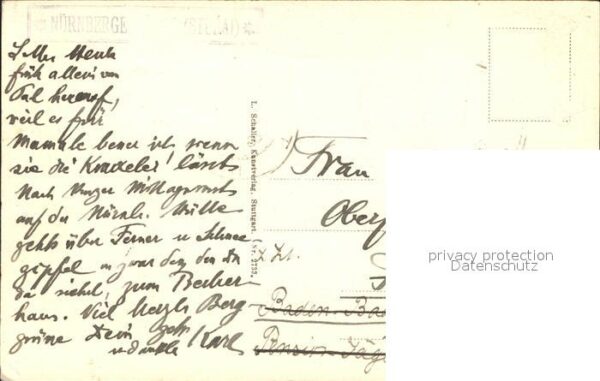 NÜRNBERGE
L. Me. Heute
früh allein vom
Tal herauf,
weil es für
Mamale besser ist, wenn
sie die Kraxelei lässt
Nach kurzer Mittagsrast
auf der Nürnb. Hütte
gehts über Ferner u Schnee
gipfel
da siehst, zum Becher
haus. Viel herzl. Berg
grüsse Dein
Karl
L. Schaller, Kunstverlag, Stuttgart.
Frau
Oberf
z. Zt.
Baden-Bad
Pension Jäge
privacy protection
Datenschutz